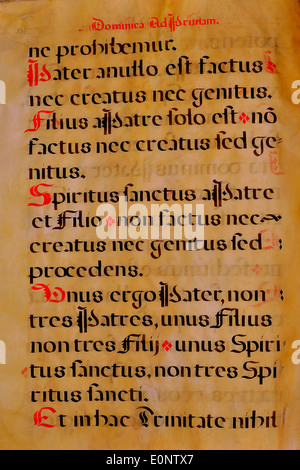 Dominica Ad Primam.
ne prohibemur.
Pater a nullo est factus
nec creatus nec genitus.
Filius a Patre solo est nõ
factus nec creatus sed ge-
nitus.
Spiritus sanctus a Patre
et Filio non factus nec
creatus nec genitus sed
procedens.
Unus ergo Pater, non
tres Patres, unus Filius
non tres Filij unus Spiri
tus sanctus, non tres Spi
ritus sancti.
Et in hac Trinitate nihil
alamy
Image ID: E0NTX7
www.alamy.com